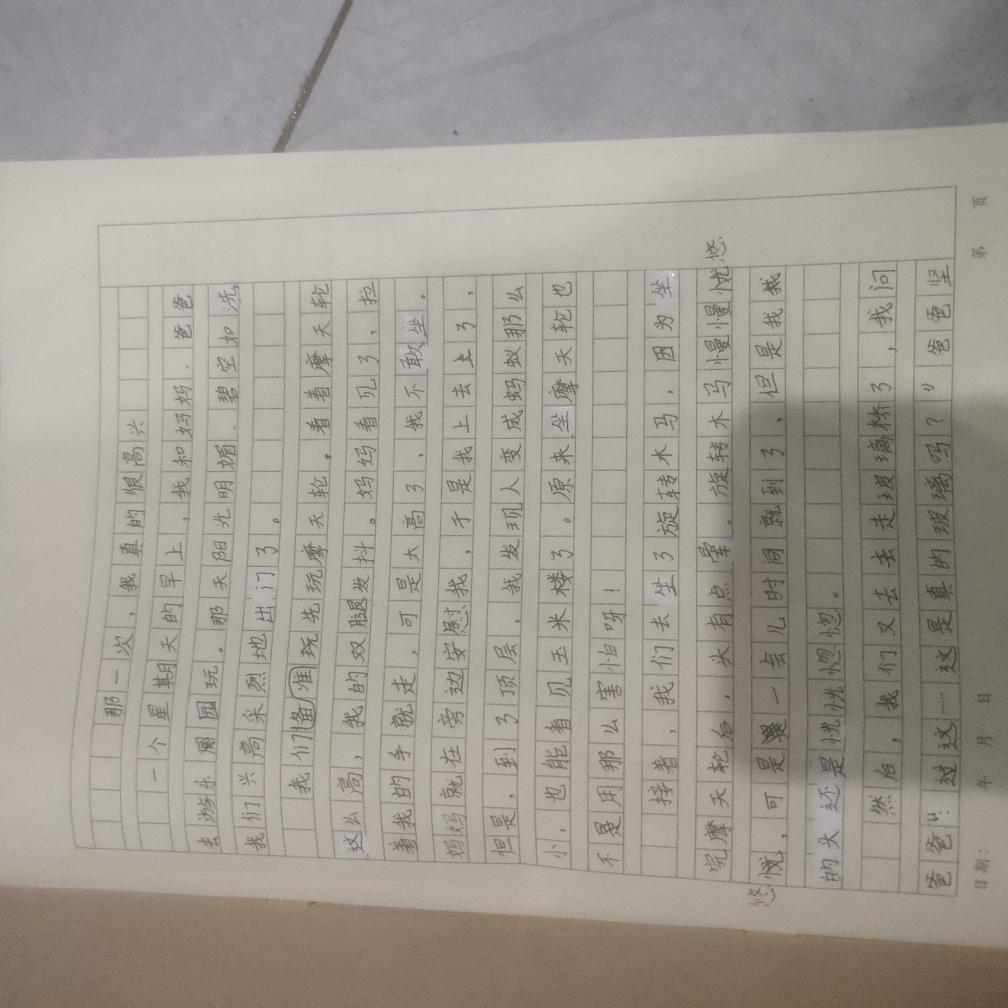 那一次，我真的很高兴
一个星期天的早上，我和妈妈、爸爸
去游乐园玩。那天阳光明媚、碧空如洗，
我们兴高采烈地出门了。
我们备准玩先玩摩天轮。看着摩天轮
这么高，我的双腿发抖。妈妈看见了，拉
着我的手就走，可是太高了，我不敢坐。
妈妈就在旁边安慰我，于是我上去上了，
但是，到了顶层，我发现人变成蚂蚁那么
小，也能看见玉米楼了。原来坐摩天轮也
不是用那么害怕呀！
接着，我们去坐了旋转木马，因为坐
完摩天轮后，头有点晕。旋转木马慢慢忧悠
悠忧，可是一会儿时间就到了，但是我
的头还是恍恍惚惚。
然后，我们又去走玻璃桥了，我问
爸爸：“过这……这是真的玻璃吗？”爸爸坚
日期： 年 月 日 第 頁